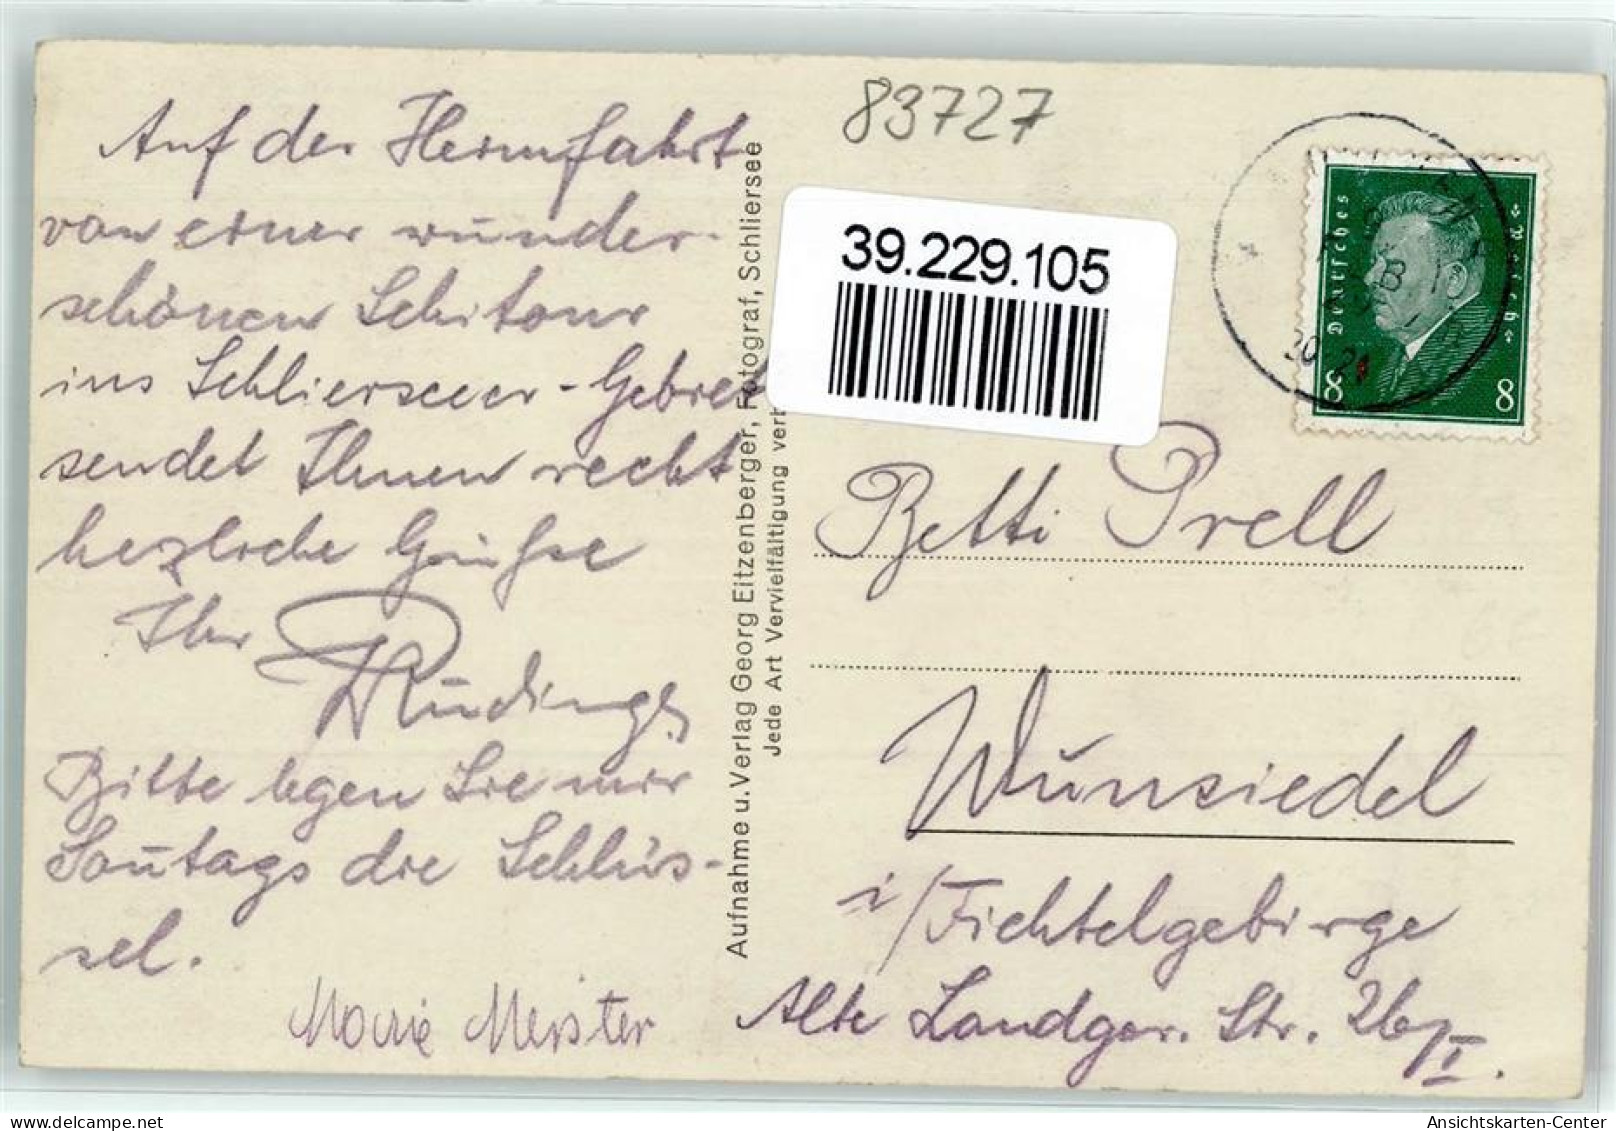 Auf der Heimfahrt
von einer wunder-
schönen Schitour
ins Schlierseeer-Gebiet
sendet Ihnen recht
herzliche Grüße
Ihr
Bitte legen Sie mir
Sonntags die Schlüs-
sel.
Marie Meister
Aufnahme u. Verlag Georg Eitzenberger, Fotograf, Schliersee
Jede Art Vervielfältigung
83727
39.229.105
Deutsches
Reich
8
8
Betti Prell
Wunsiedel
i/Fichtelgebirge
Alte Landger. Str. 26/I.
www.delcampe.net
Ansichtskarten-Center